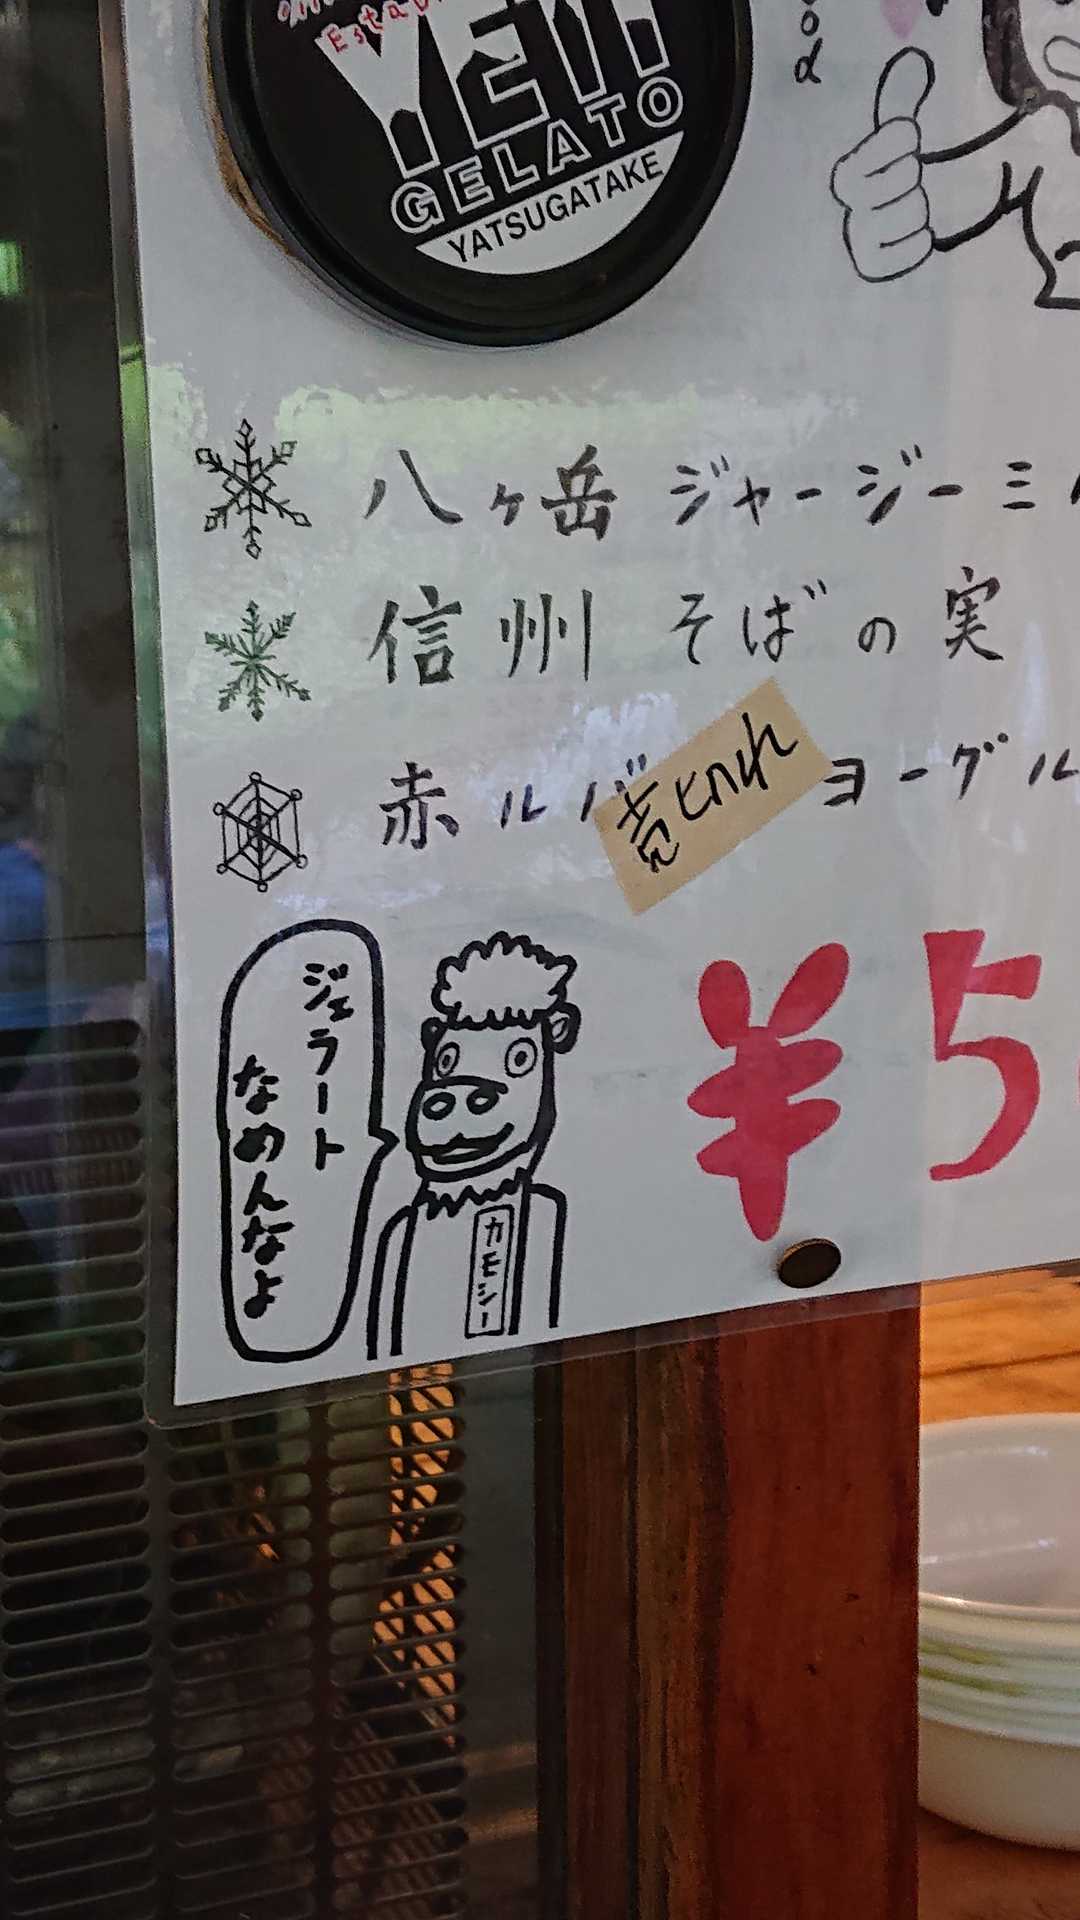 YETI
GELATO
YATSUGATAKE
八ヶ岳 ジャージーミ
信州 そばの実
赤ルバ
売り切れ
ヨーグル
ジェラート
なめんなよ
カモシー
¥5